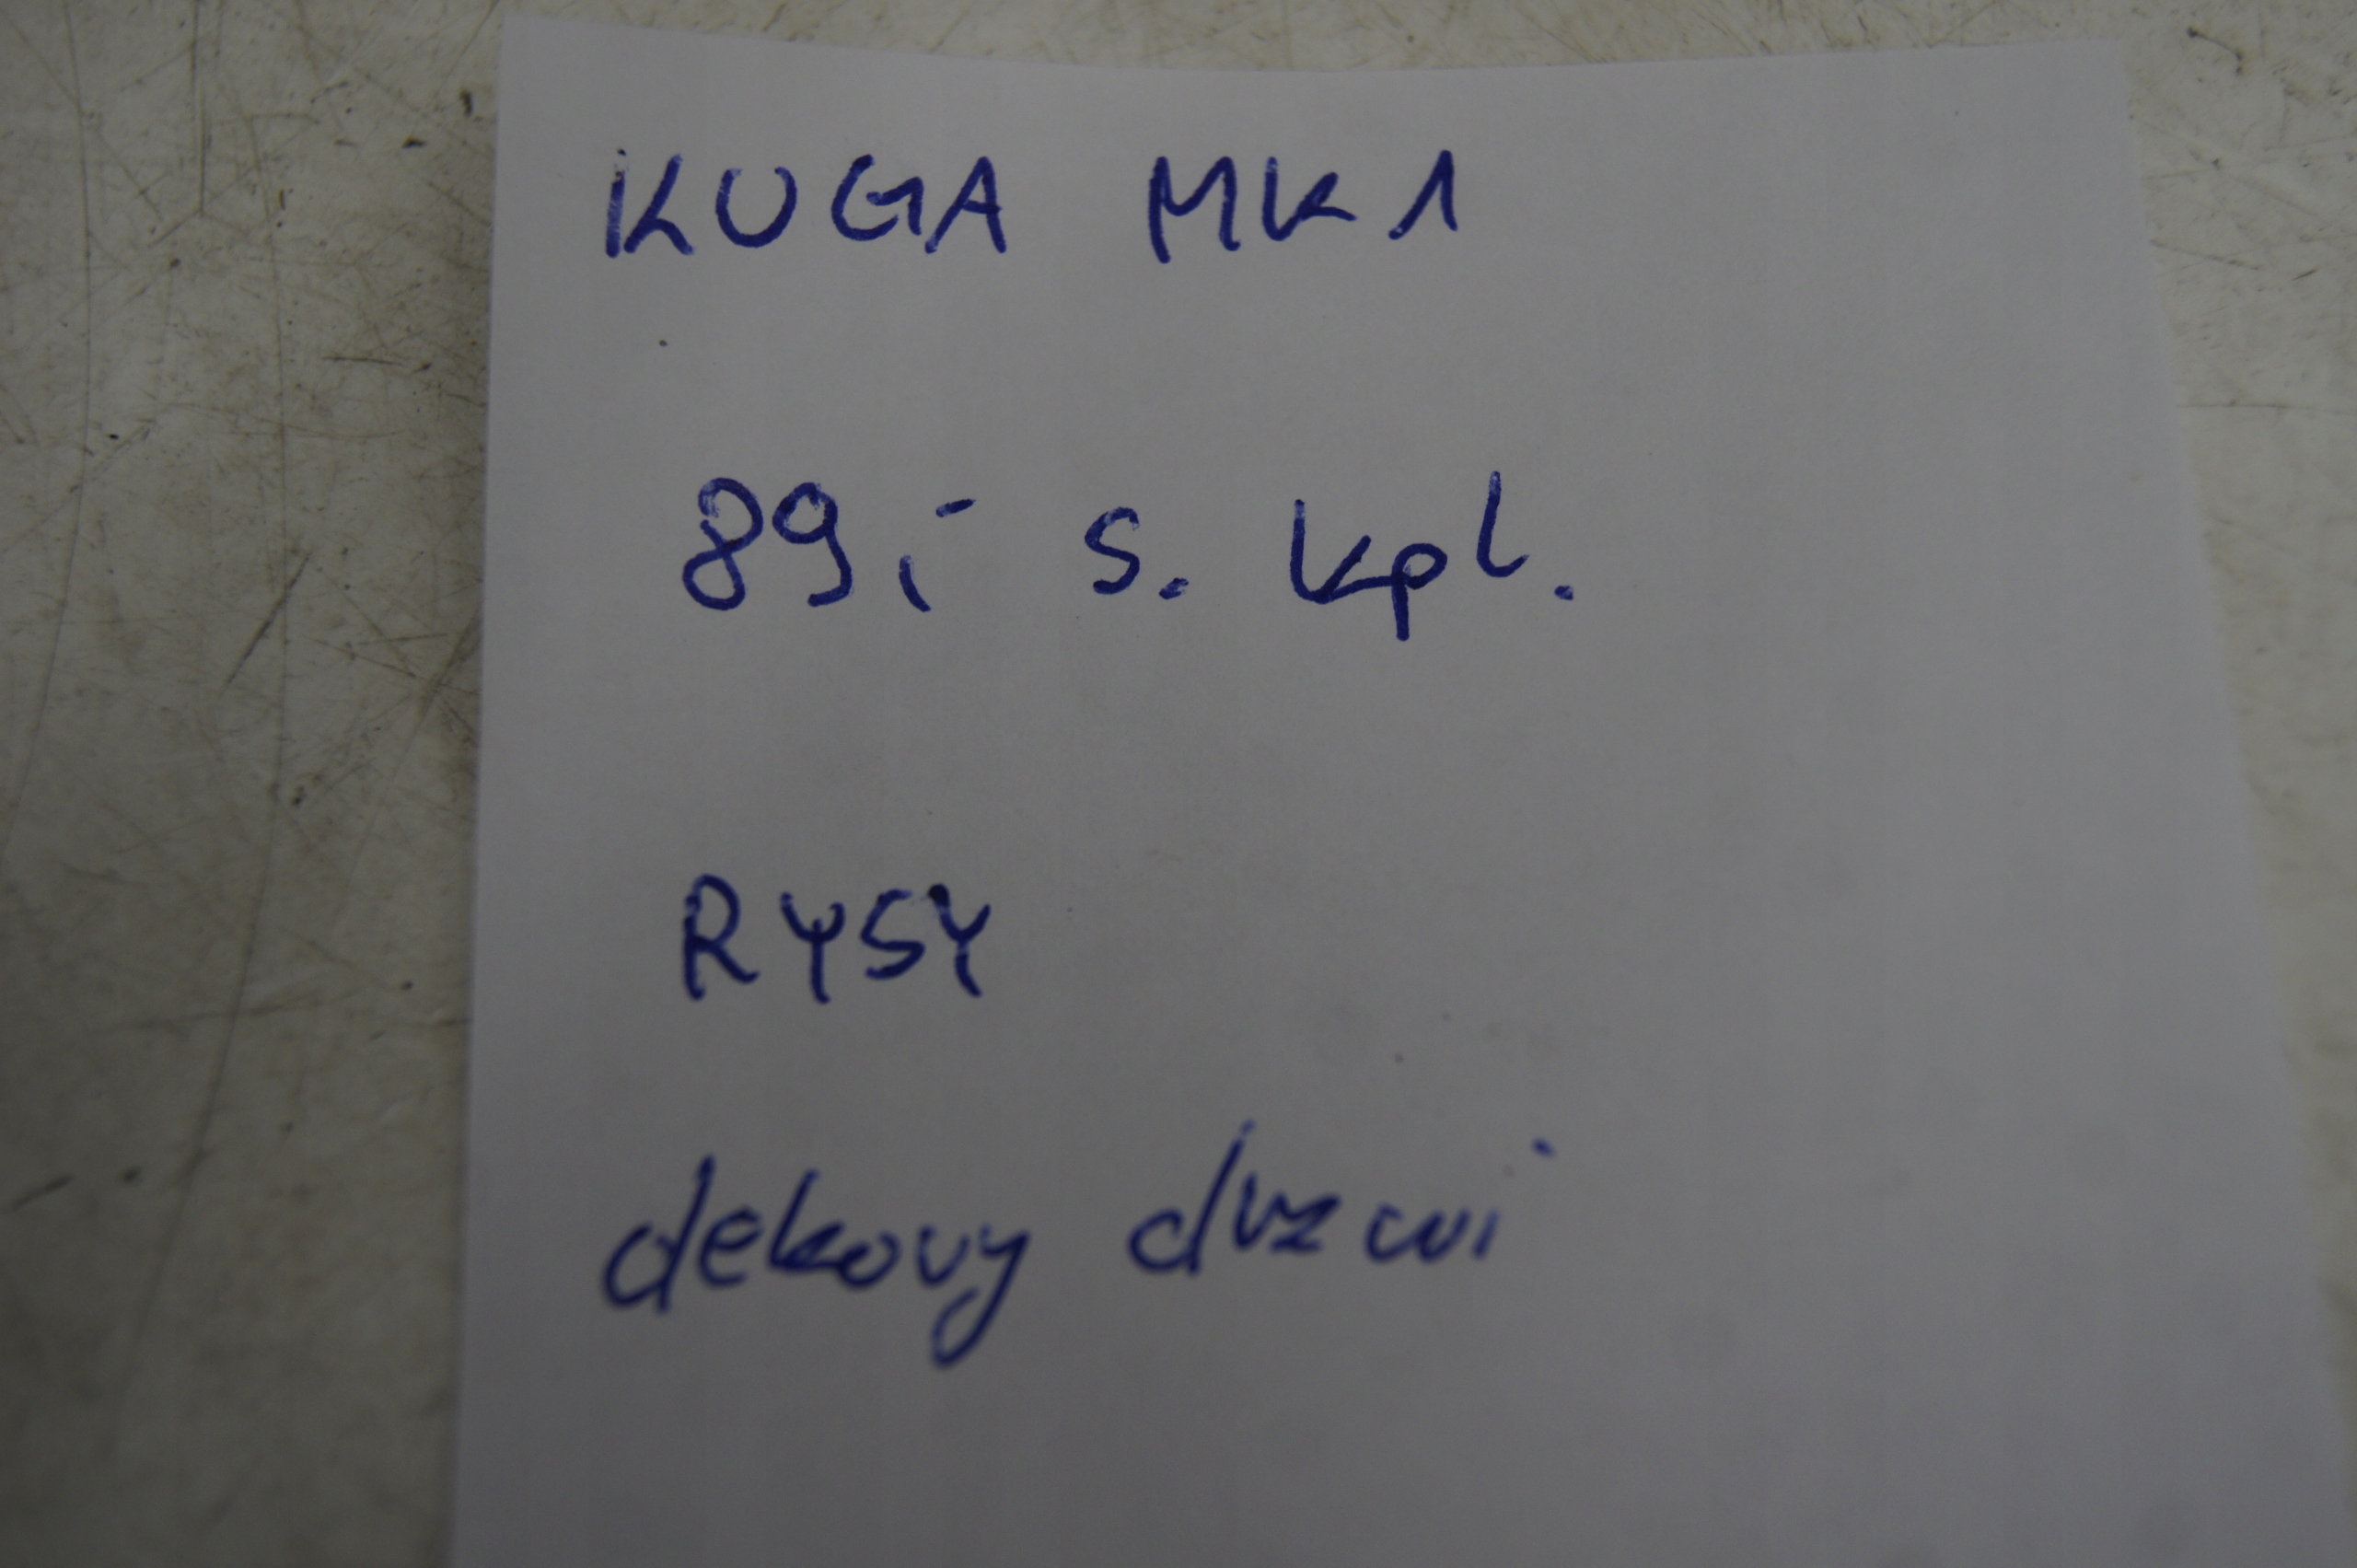 KUGA MK1
89,- s. kpl.
RYSY
dekovy drzwi